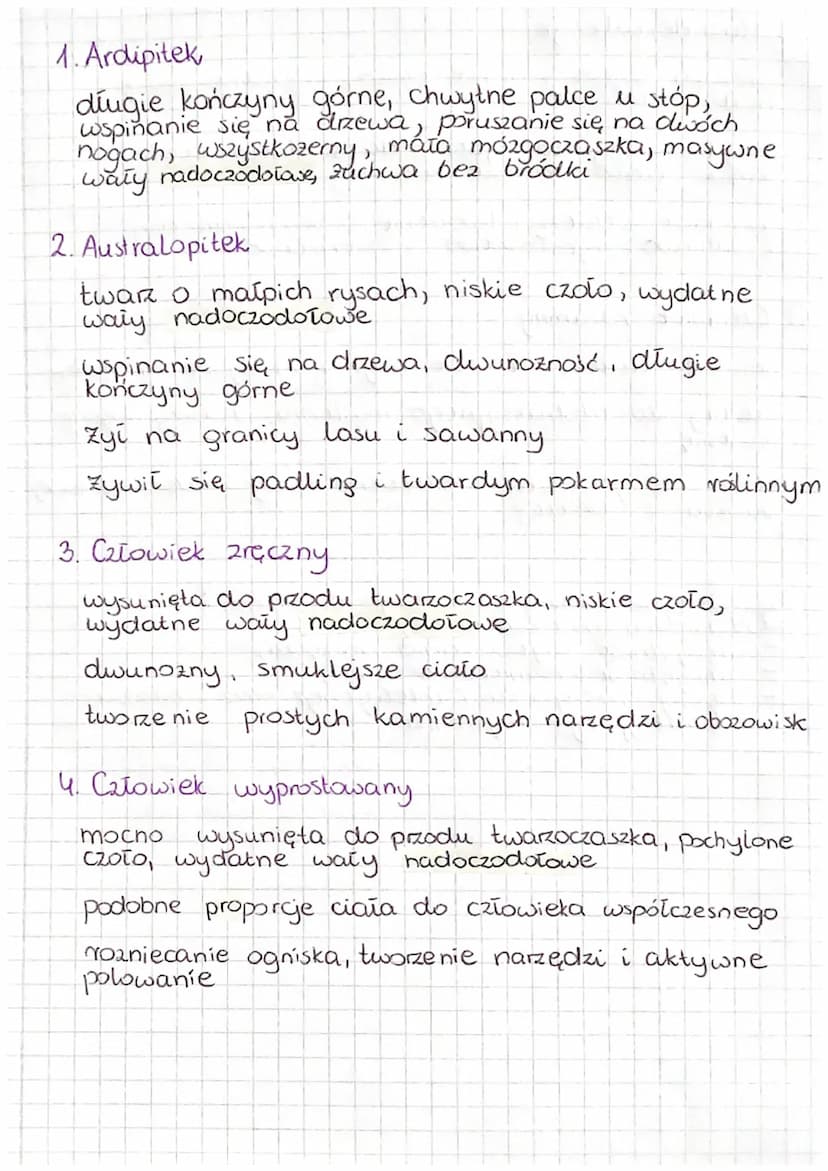 1. Ardipitek
długie kończyny górne, chwytne palce u stóp,
wspinanie się na drzewa, poruszanie się na dwóch
nogach, wszystkożerny, mała mózgoczaszka, masywne
wały nadoczodołowe, żuchwa bez bródki
2. Australopitek
twarz o małpich rysach, niskie czoło, wydatne
wały nadoczodołowe
wspinanie się na drzewa, dwunożność, długie
kończyny górne
żył na granicy lasu i sawanny
żywił się padliną i twardym pokarmem roślinnym
3. Człowiek zręczny
wysunięta do przodu twarzoczaszka, niskie czoło,
wydatne wały nadoczodołowe
dwunożny, smuklejsze ciało
tworzenie prostych kamiennych narzędzi i obozowisk
4. Człowiek wyprostowany
mocno wysunięta do przodu twarzoczaszka, pochylone
czoło, wydatne wały nadoczodołowe
podobne proporcje ciała do człowieka współczesnego
rozniecanie ogniska, tworzenie narzędzi i aktywne
polowanie